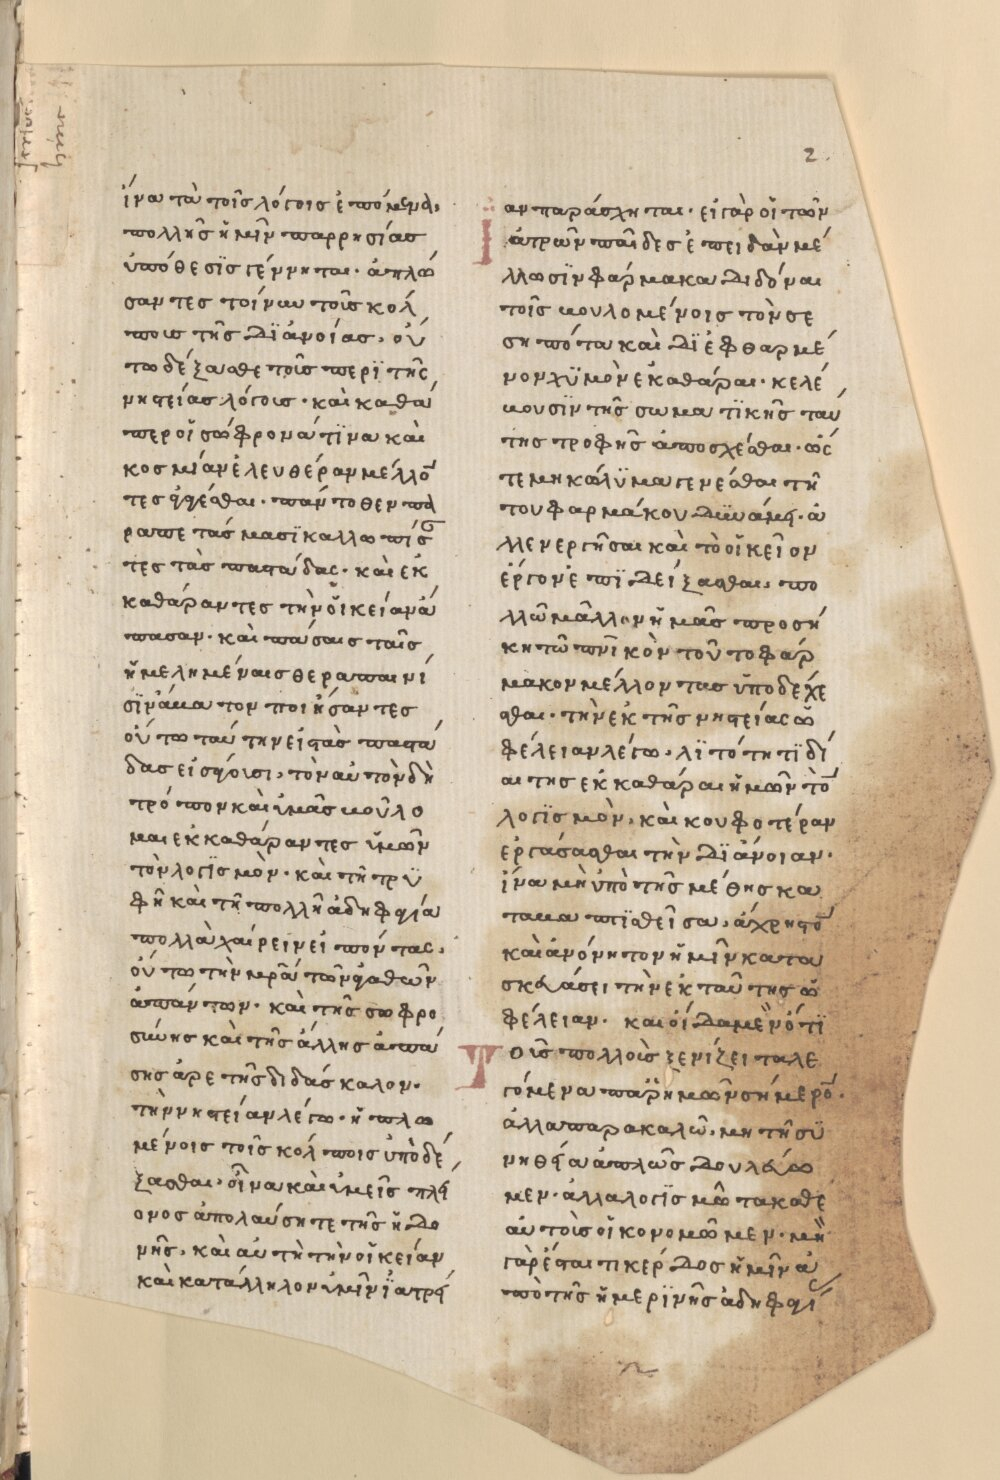 2.
ἵνα τὰ τοῖς λόγοις ἑπόμενα,
πολλῆς ἡμῖν παρρησίας
ὑπόθεσϊς γένηται. ἁπλώ
σαντες τοίνυν τοὺς κόλ
πους τῆς δϊανοίας, οὕ
τω δέξασθε τοὺς περϊ τῆς
νηστείας λόγους. καὶ καθά
περ οἱ σώφρονά τϊνα καὶ
κοσμίαν ἐλευθέραν μέλλο̅
τες ἄγεσθαι. πάντοθεν πα
ραπετάσμασϊ καλλωπίσα̅
τες τὰς παστάδας. καὶ ἐκ
καθάραντες τὴν οἰκείαν ἅ
πασαν. καὶ πάσαις ταῖς
ἠμελημέναις θεραπαινί
σϊν ἄβατον ποιήσαντες
οὕτω ταύτην εἰς τὰς παστά
δας εἰσάγουσι, τὸν αὐτὸν δὴ
τρόπον καὶ ὑμᾶς βούλο
μαι ἐκκαθάραντες ὑμῶν
τὸν λογϊσμὸν. καὶ τῆ τρϋ
φῆ καὶ τῆ πολλῆ ἀδηφαγία
πολλὰ χαίρειν εἰπόντας,
οὕτω τὴν μρ̅α τῶν ἀγαθῶν
ἁπάντων. καὶ τῆς σωφρο
σύνης καὶ τῆς ἄλλης ἁπά
σης ἀρετῆς διδάσκαλον.
τὴν νηστείαν λέγω. ἡπλω
μένοις τοῖς κόλποις ὑποδέ
ξασθαι. ἵνα καὶ ὑμεῖς πλεί
ονος ἀπολαύσητε τῆς ἡδο
νῆς, καὶ αὐτὴ τὴν οἰκείαν
καὶ κατάλληλον ὑμῖν ϊατρεί
αν παράσχηται. εἰ γὰρ οἱ τῶν
Ἰατρῶν παῖδες ἐπειδὰν μέ
λλωσϊν φάρμακα διδόναι
τοῖς βουλομένοις τὸν σε
σηπότα καὶ δϊεφθαρμέ
νον χϋμὸν ἐκκαθάραι. κελέ
βουσϊν τῆς σωματϊκῆς ταύ
της τροφῆς ἀποσχέσθαι. ὥς
τε μὴ κώλϋμα γενέσθαι τῆ
του φαρμάκου δυνάμει. ἀ
λλ ενεργῆσαι καὶ τὸ οἰκεῖον
ἔργον ἐπϊδείξασθαι, πο
λλῶ μᾶλλον ἡμᾶς προσή
κη τὸ πν̅ικὸν τοῦτο φάρ
μακον μέλλοντας ὑποδέχε
σθαι. τὴν ἐκ τῆς νηστείας ὠ
φέλειαν λέγω. λϊτότητϊ δί
αιτης ἐκκαθάραι ἡμῶν το̅
λογϊσμὸν, καὶ κουφοτέραν
ἐργάσασθαι τὴν δϊάνοιαν.
ἵνα μὴ ὑπὸ τῆς μέθης κα
ταβαπτϊσθεῖσα, ἄχρηστο̅
καὶ ἀνόνητον ἡμῖν κατα
σκευάσει τὴν ἐκ ταύτης ὠ
φέλειαν. καὶ οἶδα μὲν ὅτϊ
Τοὺς πολλοὺς ξενίζει τὰ λε
γόμενα παρ ἡμῶν σήμερο̅.
ἀλλὰ παρακαλῶ, μὴ τῆ σϋ
νηθεία ἁπλῶς δουλεύω
μεν. ἀλλὰ λογϊσμῶ τὰ καθ ε
αυτοὺς οἰκονομῶμεν. μὴ
γὰρ ἔσται τι κέρδος ἡμῖν ἀ
πὸ τῆς ἡμερϊνῆς ἀδηφαγί